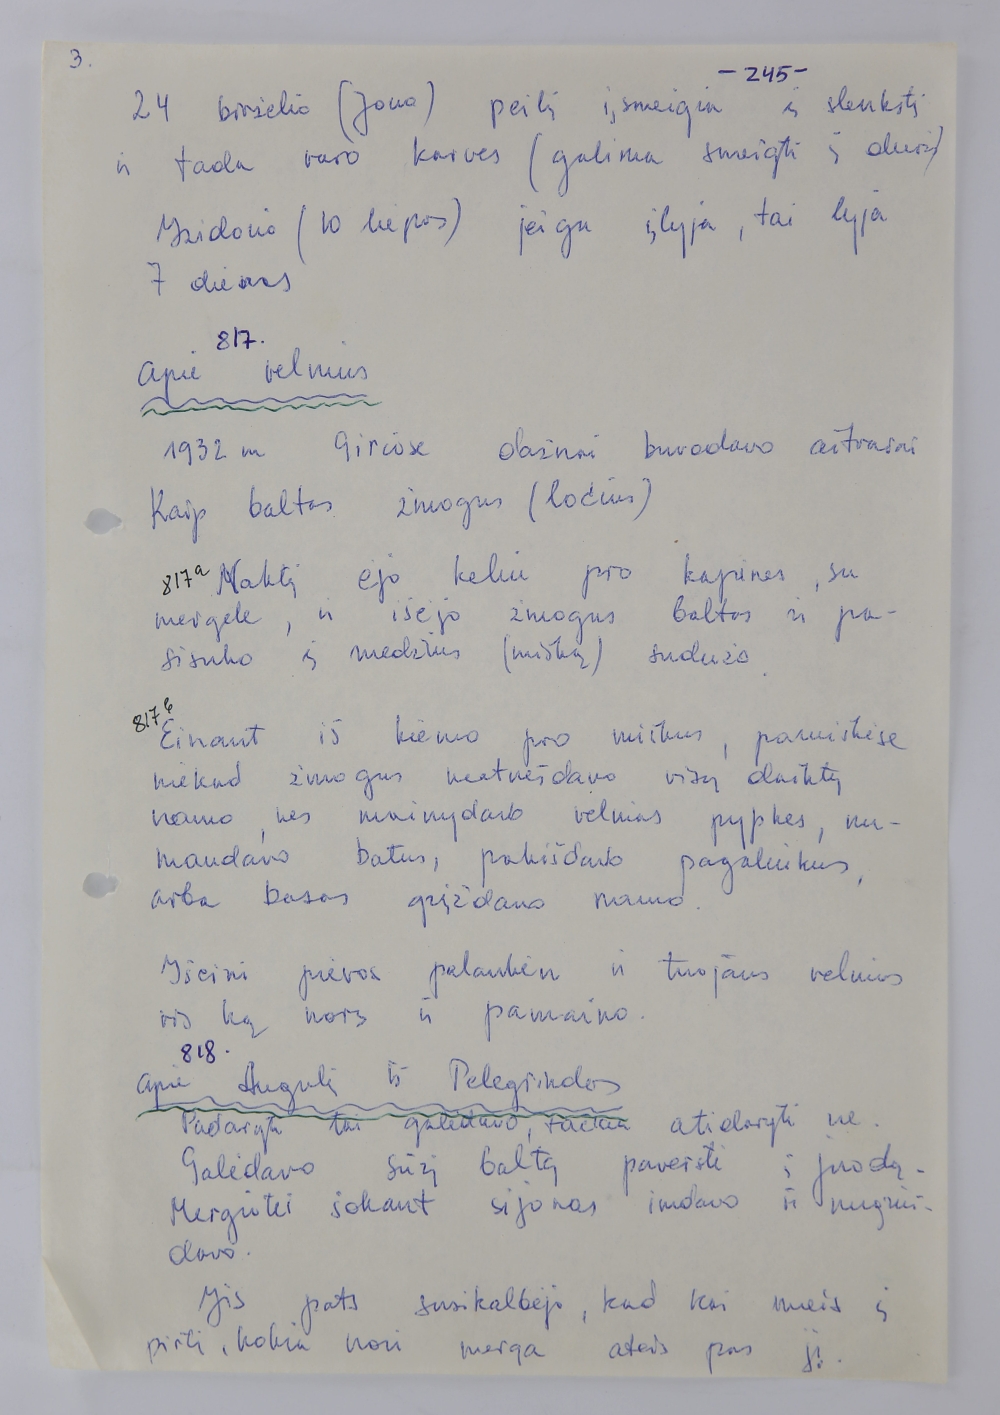 3.
- 245 -
24 birželio (Jono) peilį įsmeigia į slenkstį
ir tada varo karves (galima smeigti į duris)
Izidorio (10 liepos) jeigu įlyja, tai lyja
7 dienas
817.
Apie velnius
1932 m Girčiose dažnai buvodavo aitvarai
Kaip baltas žmogus (ločius)
817a Naktį ėjo keliu pro kapines, su
mergele, ir išėjo žmogus baltas ir pa-
sisuko į medžius (mišką) sudužo.
817b Einant iš kiemo pro miškus, pamiškėse
niekad žmogus neatnešdavo visų daiktų
namo, nes mainydavo velnias pypkes, nu-
maudavo batus, pakišdavo pagaliukus,
arba basas grįždavo namo.
Išeini pievos palankėn ir tuojaus velnias
vis ką nors ir pamaino.
818.
Apie Augulį iš Pelegrindos
Padaryti tai galėdavo, tačiau atidaryti ne.
Galėdavo sūrį baltą paversti į juodą.
Mergaitei šokant sijonas imdavo ir nugriū-
davo.
Jis pats susikalbėjo, kad kai meis į
pirtį, kokia nori merga ateis pas jį.